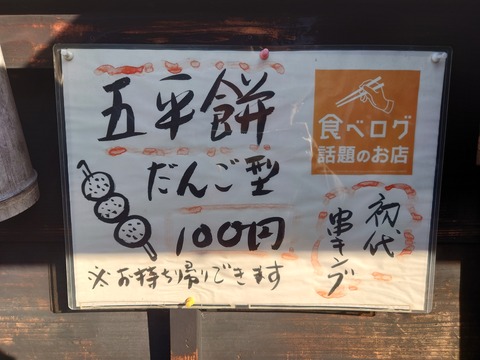 五平餅
だんご型
100円
※お持ち帰りできます
食べログ
話題のお店
初代
串キング